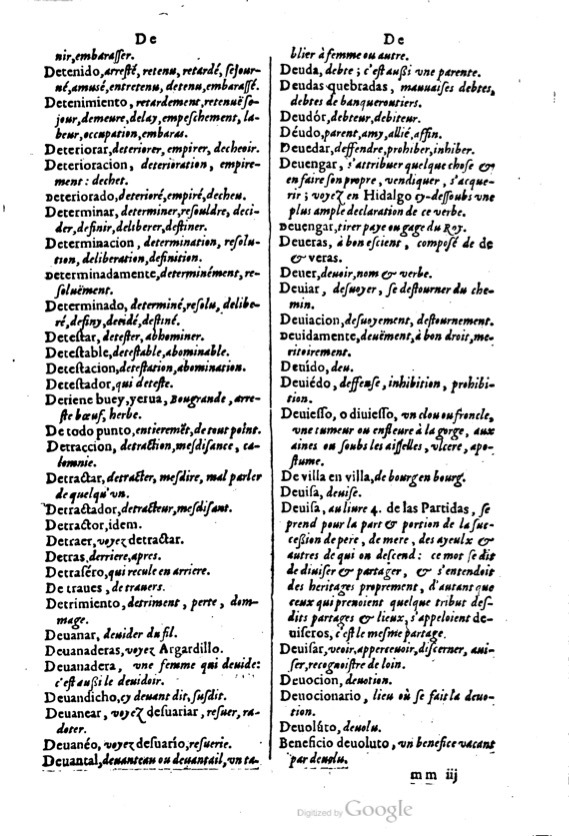 De
nir,embarasser.
Detenido,arresté, retenu, retardé, sejour-
né,amusé,entretenu, detenu,embarassé.
Detenimiento, retardement,retenuë so-
jour,demeure,delay,empeschement, la-
beur,occupation,embaras.
Deteriorar,deteriorer, empirer, decheoir.
Deterioracion, deterioration, empire-
ment: dechet.
Deteriorado,deterioré,empiré,decheu.
Determinar, determiner,resouldre, deci-
der,definir,deliberer,destiner.
Determinacion, determination, resolu-
tion, deliberation,definition.
Determinadamente,determinément,re-
soluëment.
Determinado, determiné,resolu, delibe-
ré,definy,decidé,destiné.
Detestar, detester, abhominer.
Detestable,detestable,abominable.
Detestacion,detestation,abomination.
Detestador,qui deteste.
Detiene buey,yerua, Bougrande, arre-
ste bœuf, herbe.
De todo punto,entieremẽt,de tout point.
Detraccion, detraction,mesdisance, ca-
lomnie.
Detractar, detracter, mesdire, mal parler
de quelqu'vn.
Detractador,detracteur,mesdisant.
Detractor,idem.
Detraer, voyez detractar.
Detras,derriere,apres.
Detraséro,qui recule en arriere.
De traues, de trauers.
Detrimiento, detriment, perte, dom-
mage.
Deuanar, deuider du fil.
Deuanaderas,voyez Argardillo.
Deuanadera, vne femme qui deuide:
c'est aussi le deuidoir.
Deuandicho,cy deuant dit,susdit.
Deuanear, voyez desuariar, resuer, ra-
doter.
Deuanéo, voyez desuario,resuerie.
Deuantal,deuanteau ou deuantail,vn ta-
De
blier à femme ou autre.
Deuda, debte; c'est aussi vne parente.
Deudas quebradas, mauuaises debtes,
debtes de banqueroutiers.
Deudór,debteur,debiteur.
Déudo,parent,amy,allié,affin.
Deuedar,deffendre,prohiber,inhiber.
Deuengar, s'attribuer quelque chose &
en faire son propre, vendiquer, s'acque-
rir; voyez en Hidalgo cy-dessoubs vne
plus ample declaration de ce verbe.
Deuengar,tirer paye ou gage du Roy.
Deueras, à bon escient, composé de de
& veras.
Deuer,deuoir,nom & verbe.
Deuiar, desuoyer, se destourner du che-
min.
Deuiacion,desuoyement, destournement.
Deuidamente,deuëment,à bon droit,me-
ritoirement.
Deuido,deu.
Deuiédo, deffense, inhibition, prohibi-
tion.
Deuiesso, o diuiesso, vn clou ou froncle,
vne tumeur ou enfleure à la gorge, aux
aines ou soubs les aisselles, vlcere, apo-
stume.
De villa en villa,de bourg en bourg.
Deuisa, deuise.
Deuisa, au liure 4. de las Partidas, se
prend pour la part & portion de la suc-
cession de pere, de mere, des ayeulx &
autres de qui on descend: ce mot se dit
de diuiser & partager, & s'entendoit
des heritages proprement, d'autant que
ceux qui prenoient quelque tribut des-
dits partages & lieux, s'appeloient de-
uiseros, c'est le mesme partage.
Deuisar,veoir,apperceuoir,discerner, aui-
ser,recognoistre de loin.
Deuocion, deuotion.
Deuocionario, lieu où se fait la deuo-
tion.
Deuolúto, deuolu.
Beneficio deuoluto, vn benefice vacant
par deuolu.
mm iij
Digitized by Google